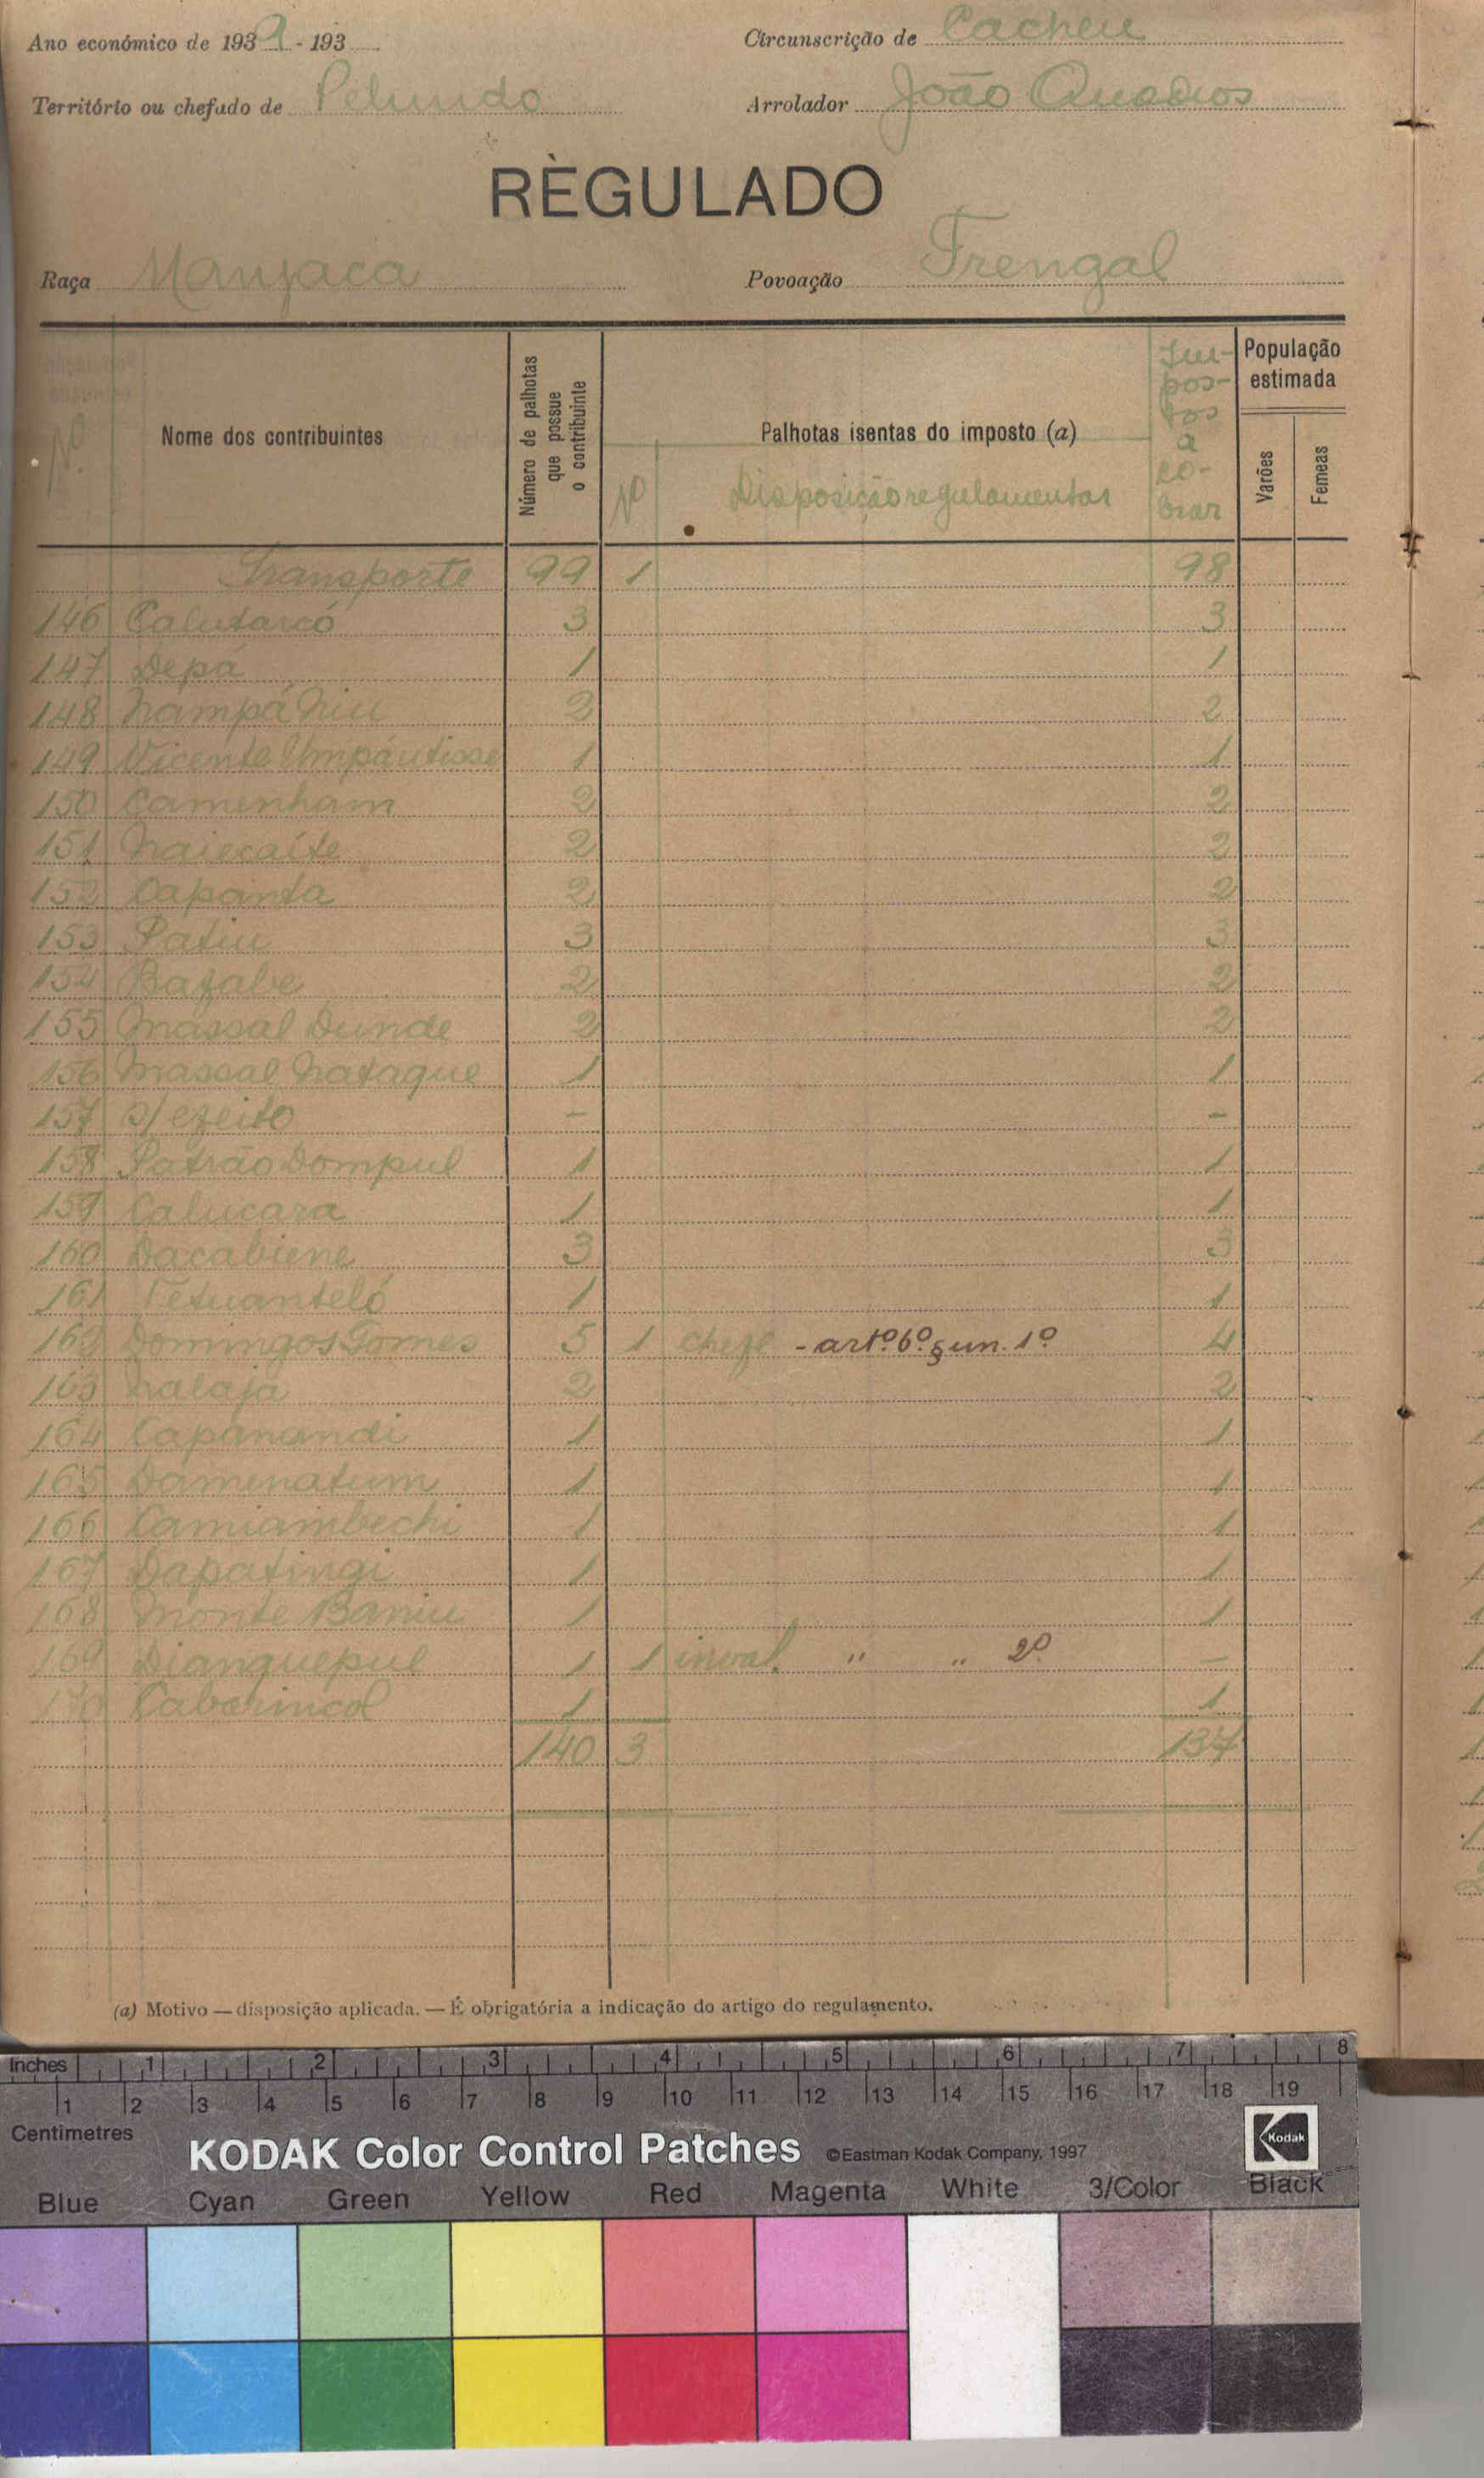 Ano económico de 1939 - 193
Circunscrição de Cacheu
Território ou chefado de Pelundo
Arrolador João Quadros
RÈGULADO
Raça Manjaca
Povoação Frengal
Nº
Nome dos contribuintes
Número de palhotas que possue o contribuinte
Palhotas isentas do imposto (a)
Nº Disposição regulamentar
Impostos a cobrar
População estimada
Varões
Femeas
Transporte 99 1 98
146 Calutarcó 3 3
147 Depá 1 1
148 Nampá Niu 2 2
149 Vicente Umpáutisse 1 1
150 Camenham 2 2
151 Naiecaíte 2 2
152 Capanta 2 2
153 Patiu 3 3
154 Bafabe 2 2
155 Massal Dunde 2 2
156 Massal Nataque 1 1
157 s/efeito - -
158 Patrão Dompul 1 1
159 Calucara 1 1
160 Dacabiene 3 3
161 Tetuanteló 1 1
162 Domingos Gomes 5 1 chefe - artº. 6º. § un. 1º 4
163 Nalaja 2 2
164 Capanandi 1 1
165 Damenatum 1 1
166 Camiambechi 1 1
167 Dapatingi 1 1
168 Monte Baniu 1 1
169 Dianguepul 1 1 inval. " " 2º -
170 Caberincol 1 1
140 3 137
(a) Motivo — disposição aplicada. — É obrigatória a indicação do artigo do regulamento.
Inches 1 2 3 4 5 6 7 8
1 2 3 4 5 6 7 8 9 10 11 12 13 14 15 16 17 18 19
Centimetres
KODAK Color Control Patches ©Eastman Kodak Company, 1997 Kodak
Blue Cyan Green Yellow Red Magenta White 3/Color Black